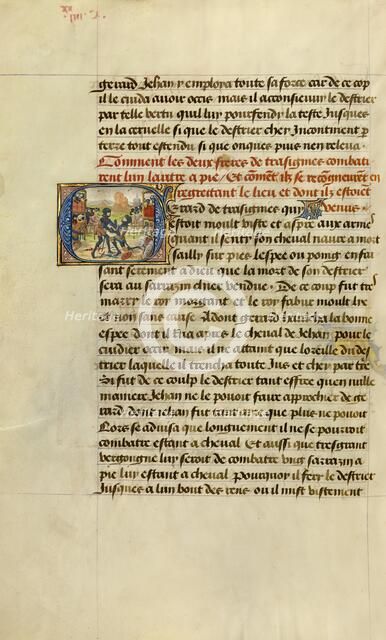 gerard Jehan y employa toute sa force car de ce cop
il le cuida avoir occis mais il acconsieuvy le destrier
par telle vertu quil luy pourfendy la teste Jusques
en la cervelle si que le destrier chey Incontinent p
terre tout estendu si que oncques puis nen releva
Comment les deux freres de trasignies combati
rent lun lautre a pie / Et coment ilz se recongneurent en
regretant le lieu et dont ilz estoient
Gerard de trasignies quy venus
estoit moult viste et aspre aux armes
quant il senty son cheval navre a mort
sailly sur pies lespee ou poing en fai
sant serement a dieu que la mort de son destrier
sera au sarrazin chier vendue De ce coup fut tres
marry le roy morgant et le roy fabur moult lye
et non sans cause Adont gerard haulcha la bonne
espee dont il frra apres le cheval de Jehan pour le
cuidier occir mais il ne attaint que loreille du des
trier laquelle il trencha toute Jus et chey par tre
Si fut de ce coulp le destrier tant effree que en nulle
maniere Jehan ne le povoit faire approchier de ge
rard dont Jehan fut tant yre que plus ne povoit
Lors se advisa que longuement il ne se pourroit
combatre estant a cheval Et aussi que tresgrant
vergongne luy seroit de combatre ung sarrazin a
pie luy estant a cheval Pourquoy il fery le destrier
Jusques a lun bout des rens ou il mist vistement